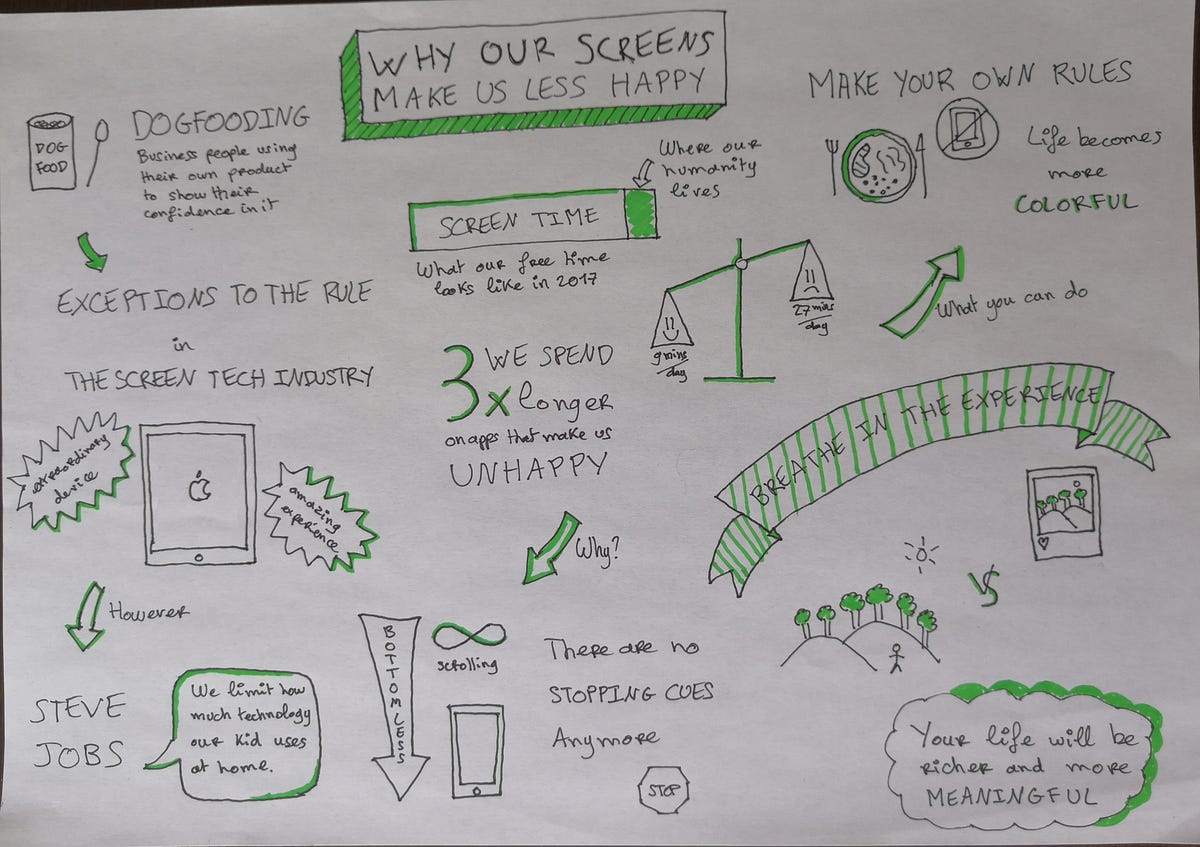 WHY OUR SCREENS
MAKE US LESS HAPPY
DOG
FOOD
DOGFOODING
Business people using
their own product
to show their
confidence in it
EXCEPTIONS TO THE RULE
in
THE SCREEN TECH INDUSTRY
extraordinary
device
amazing
experience
However
STEVE
JOBS
We limit how
much technology
our kid uses
at home.
Where our
humanity
lives
SCREEN TIME
What our free time
looks like in 2017
9 mins
/day
27 mins
/day
3x
WE SPEND
longer
on apps that make us
UNHAPPY
Why?
BOTTOMLESS
scrolling
There are no
STOPPING CUES
Anymore
STOP
MAKE YOUR OWN RULES
Life becomes
more
COLORFUL
What you can do
BREATHE IN THE EXPERIENCE
VS
Your life will be
richer and more
MEANINGFUL